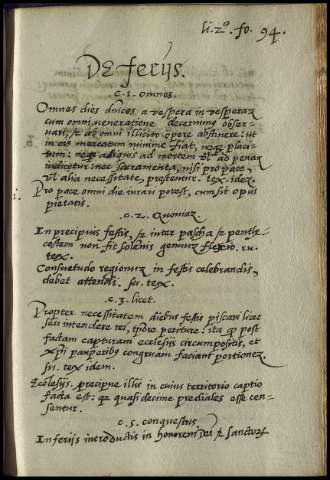 li. 2º. fo. 94.
DE feriis.
c. 1. omnes.
Omnes dies dnicos a vespera in vesperaz
cum omni veneratione decernimus obser-
vari, et ab omni illicito opere abstinere: ut
in eis mercatum minime fiat, neqz placi-
tum: neqz aliquis ad mortem vl ad penaz
iudicetur nec sacramenta, nisi pro pace,
vl alia necessitate, prestentur. tex. idez.
Pro pace omni die iurari potest, cum sit opus
pietatis.
c. 2. Quoniaz
In precipuis festis, et inter pascha et pente-
costem non fit solenis genuuz flexio. su.
tex.
Consuetudo regionuz in festis celebrandis,
debet attendi. su. tex.
c. 3. licet.
Propter necessitatem diebus festis piscari licet
seu intendere rei, tpore periture: ita qz post
factam capturam ecclesiis circumpositis, et
xpi pauperibz congruam faciant portionez.
su. tex. idem.
Ecclesiis precipue illis in cuius territorio captio
facta est: qz quasi decime prediales esse cen-
sentur.
c. 5. conquestus
In feriis introductis in honorem Dei et Sanctorz